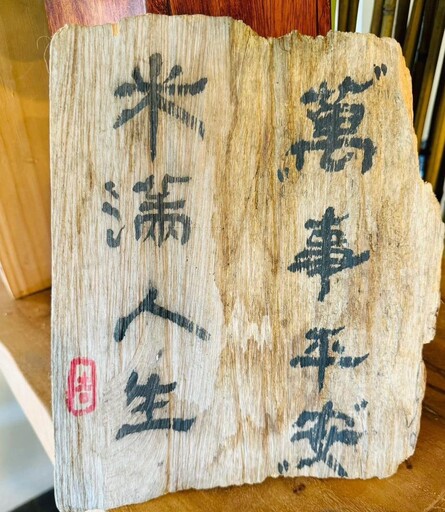 萬事平安
米滿人生